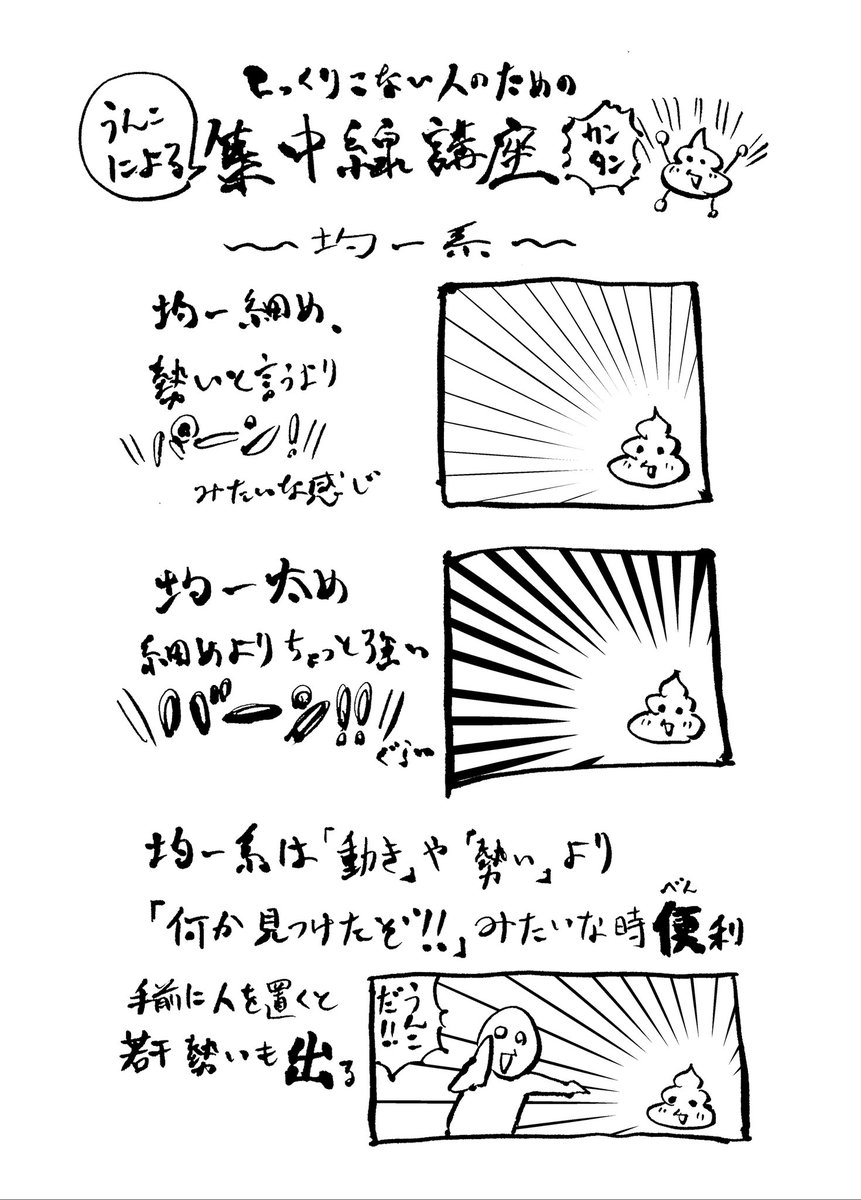 しっくりこない人のための
うんこ
による
集中線講座
カン
タン
〜均一系〜
均一細め、
勢いと言うより
パーン!
みたいな感じ
均一太め
細めよりちょっと強い
バーン!!
ぐらい
均一系は「動き」や「勢い」より
べん
「何か見つけたぞ!!」みたいな時便利
手前に人を置くと
若干勢いも出る
うんこ
だ!!